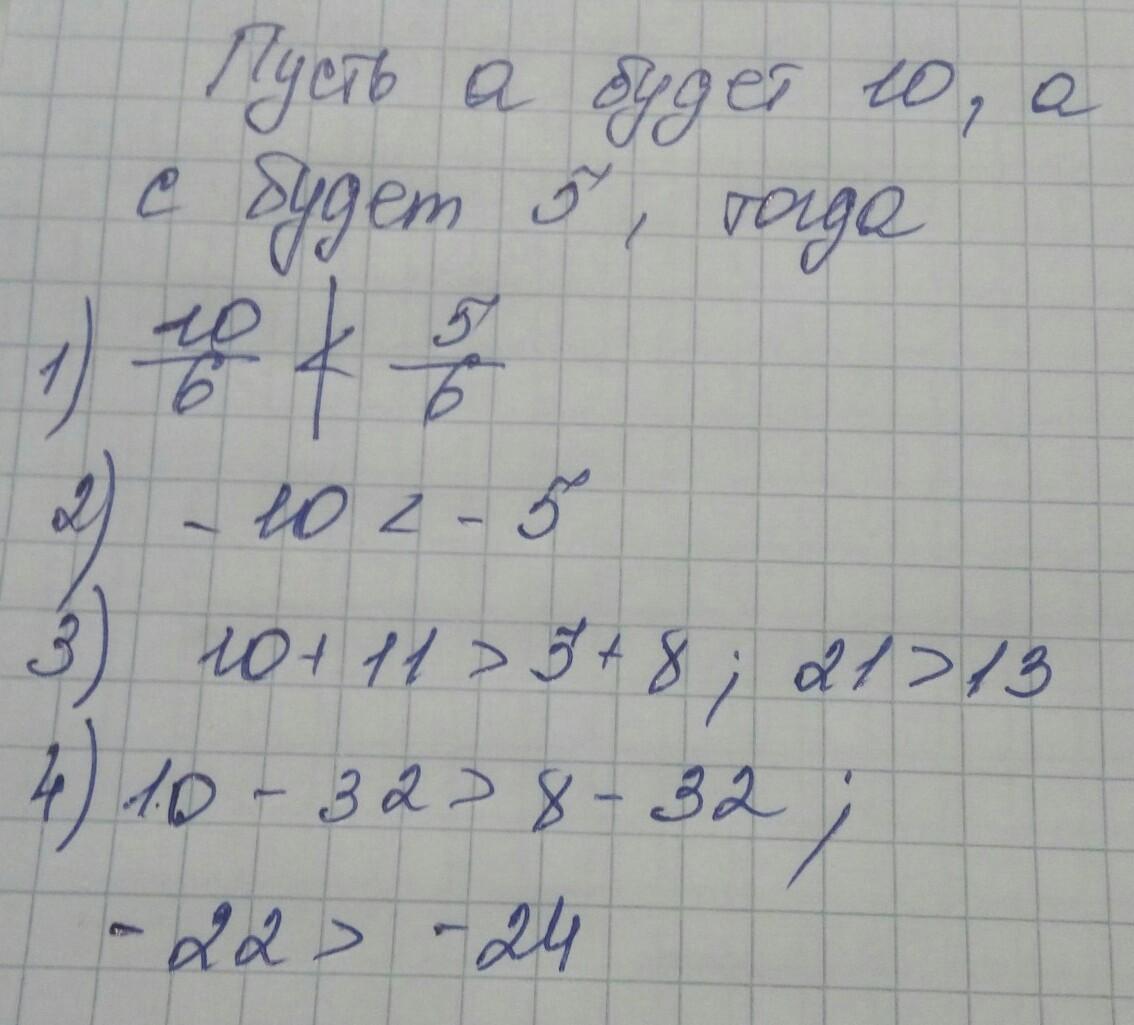 Пусть а будет 10, а
с будет 5, тогда
1) 10/6 < 5/6
2) - 10 < - 5
3) 10 + 11 > 5 + 8 ; 21 > 13
4) 10 - 32 > 8 - 32 ;
- 22 > - 24